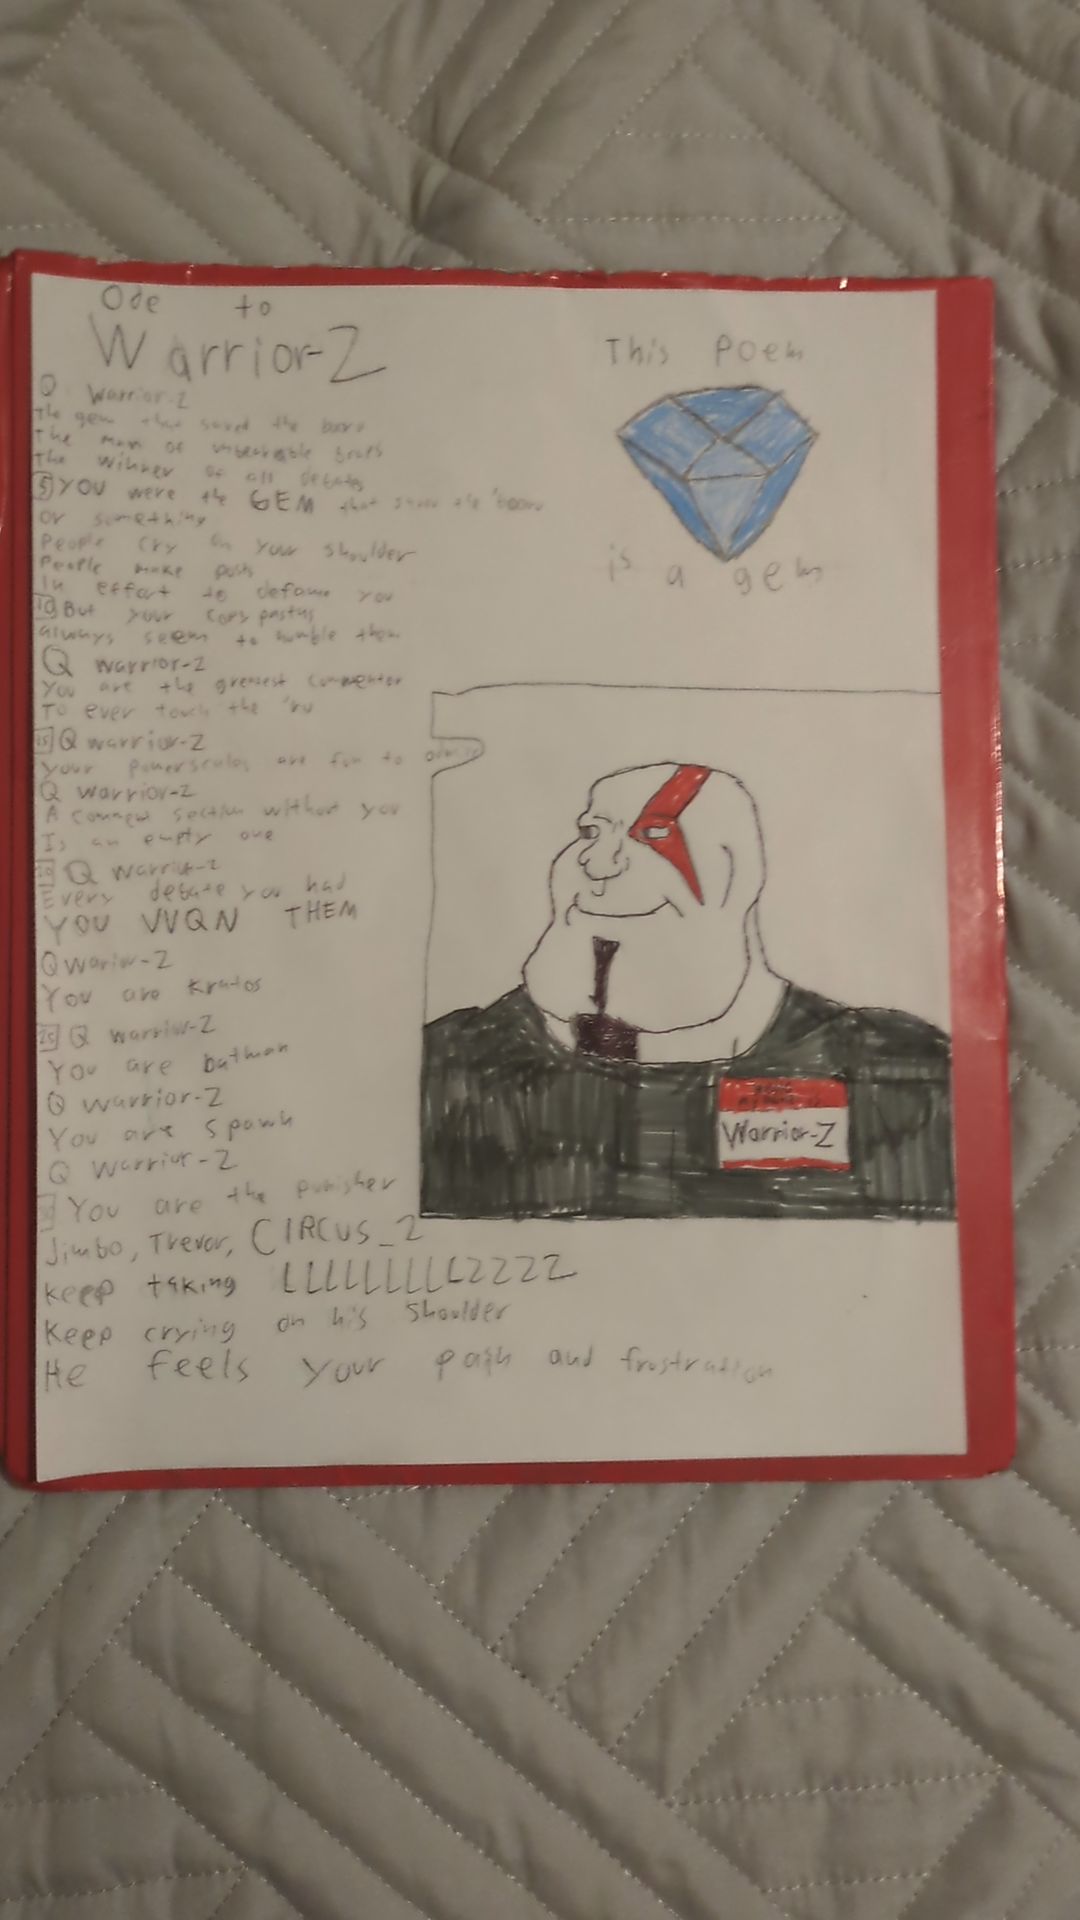 Ode to
Warrior-Z
O Warrior-Z
The gem that saved the
The man of unbeatable
The winner of all debates
5 YOU were the GEM that the
or something
People cry on your shoulder
People make posts
In effort to defame you
10 But your copypastas
always seem to humble them
Q warrior-Z
You are the greatest commentor
To ever touch the 'ru
15 Q warrior-Z
Your powerscales are fun to
Q warrior-Z
A comment section without you
Is an empty one
20 Q warrior-Z
Every debate you had
YOU WQN THEM
Q warior-Z
You are Kratos
25 Q warrior-Z
You are batman
Q warrior-Z
You are spawn
Q warrior-Z
You are the punisher
Jimbo, Trevor, CIRCUS_2
keep taking LLLLLLLLLZZZZ
Keep crying on his shoulder
He feels your pain and frustration
This Poem
is a gem
Warrior-Z